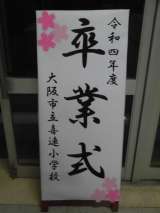 令和四年度
卒業式
大阪市立喜連小学校